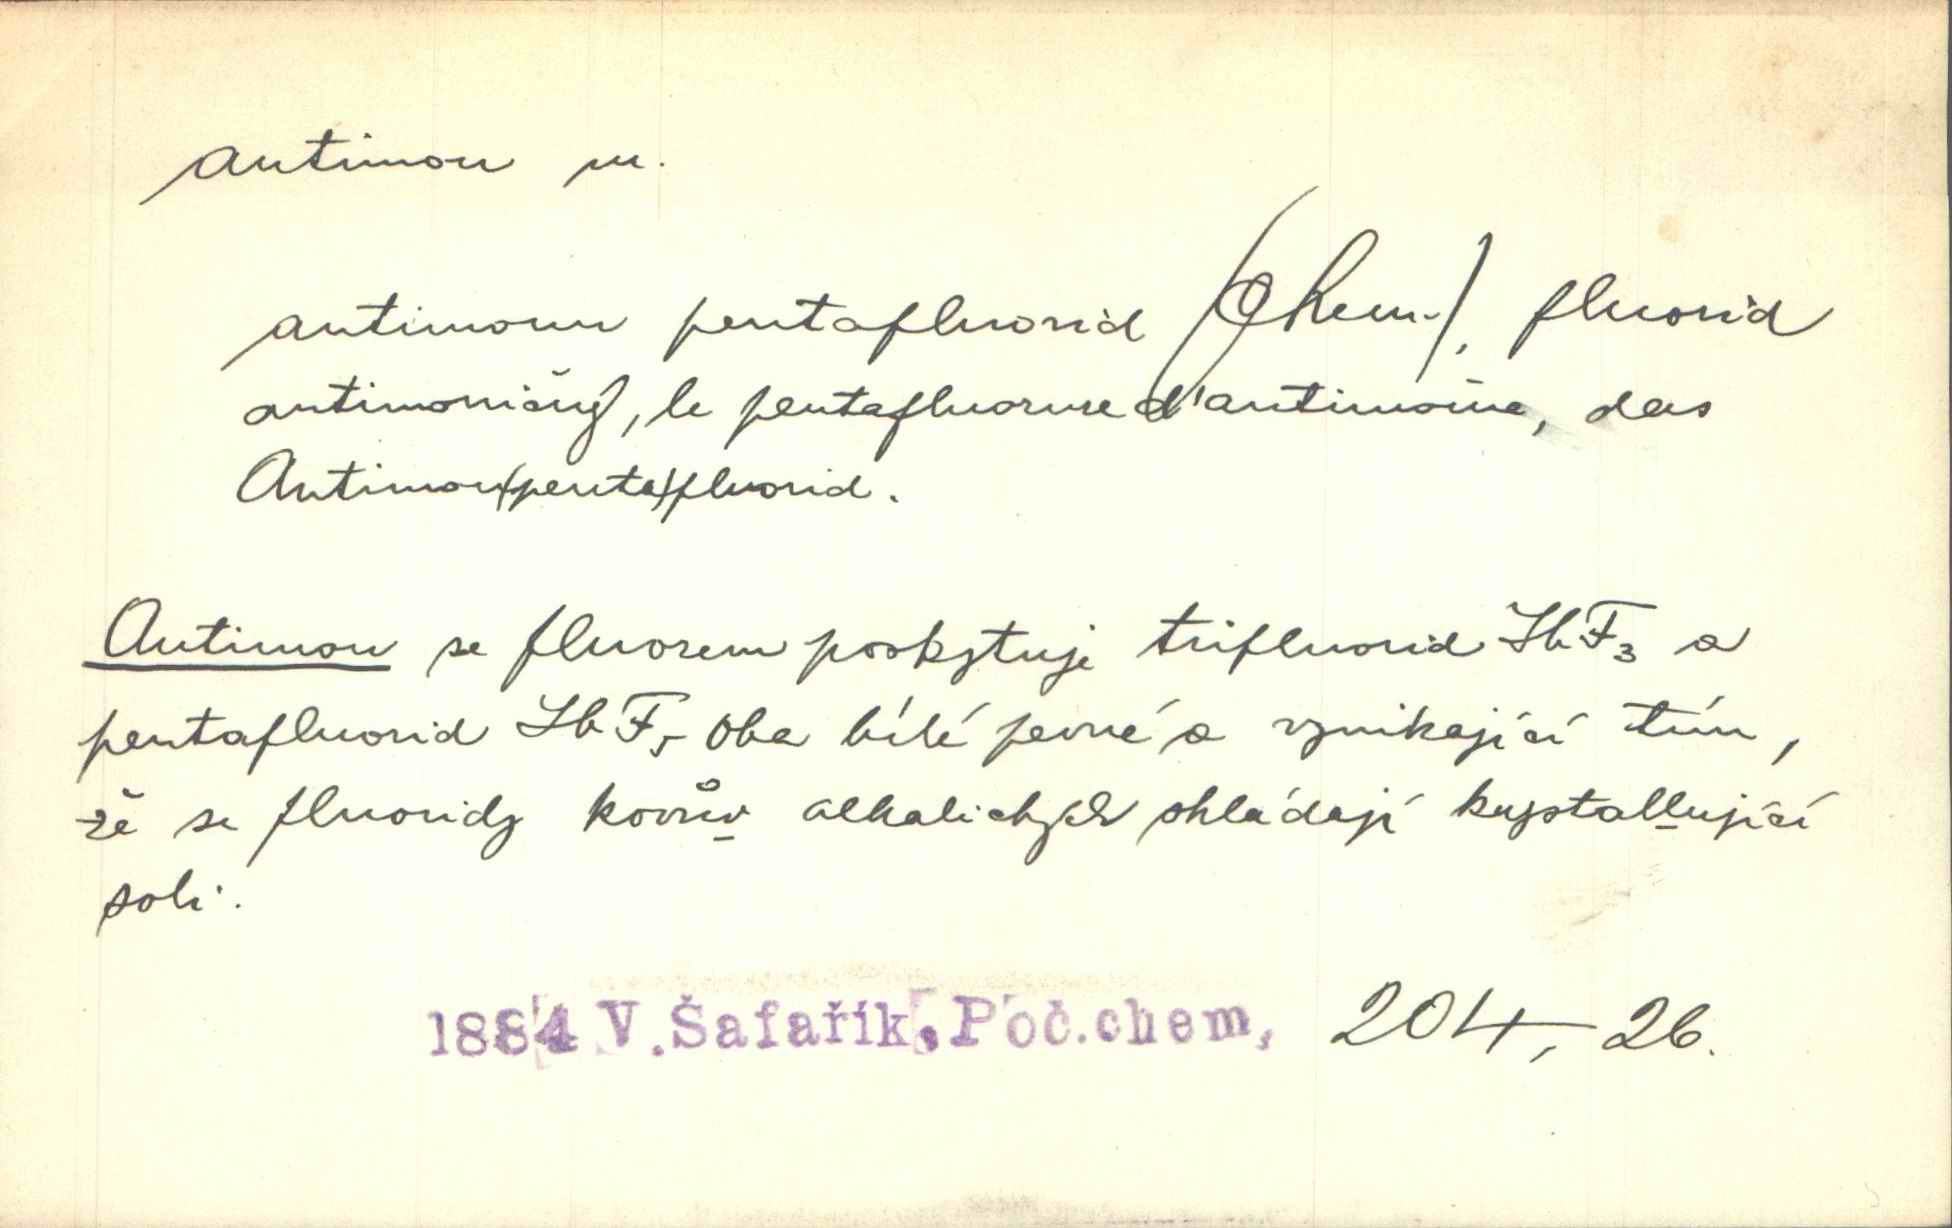 antimon m.
antimonu pentafluorid (Chem.), fluorid
antimoničný, le pentafluorure d'antimoine, das
Antimon(penta)fluorid.
Antimon se fluorem poskytuje trifluorid SbF₃ a
pentafluorid SbF₅ oba bílé pevné a vynikající tím,
že se fluoridy kovův alkalických skládají krystallující
soli.
1884 V.Šafařík.Poč.chem, 204, 26.